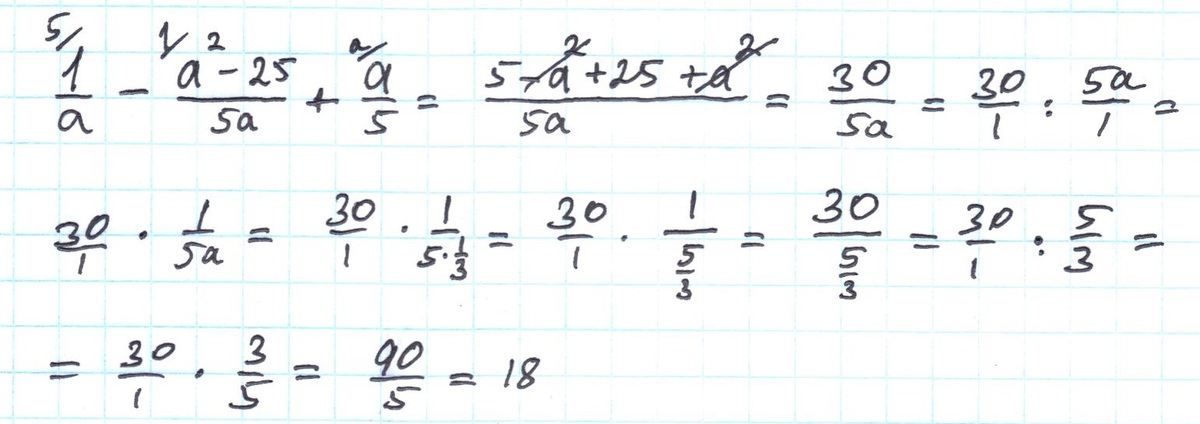 5/ 1/a - 1/ (a² - 25)/5a + a/ a/5 = (5 - a² + 25 + a²)/5a = 30/5a = 30/1 : 5a/1 =
30/1 · 1/5a = 30/1 · 1/(5·1/3) = 30/1 · 1/(5/3) = 30/(5/3) = 30/1 : 5/3 =
= 30/1 · 3/5 = 90/5 = 18